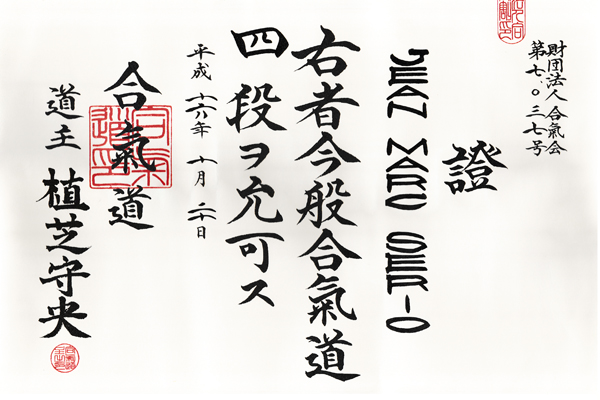 財団法人 合氣会
第七.〇三七号
證
JEAN MARC SERIO
右者今般合氣道
四段ヲ允可ス
平成 十六年 十月 二十日
合氣道
道主 植芝守央